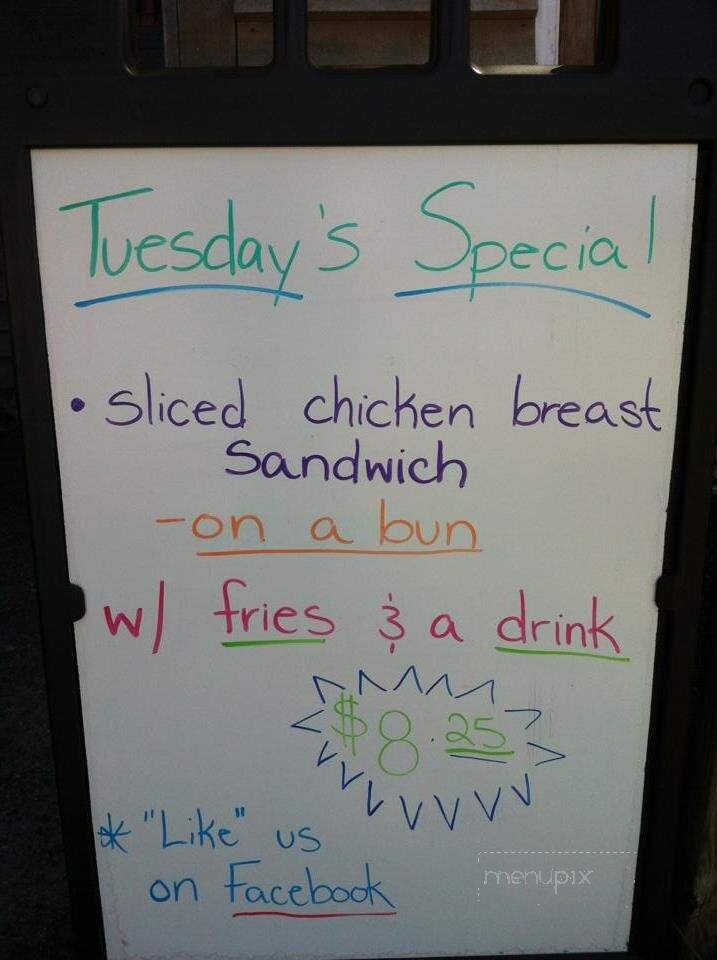 Tuesday's Special
• sliced chicken breast
sandwich
- on a bun
w/ fries & a drink
$8.25
* "Like" us
on Facebook
menupix